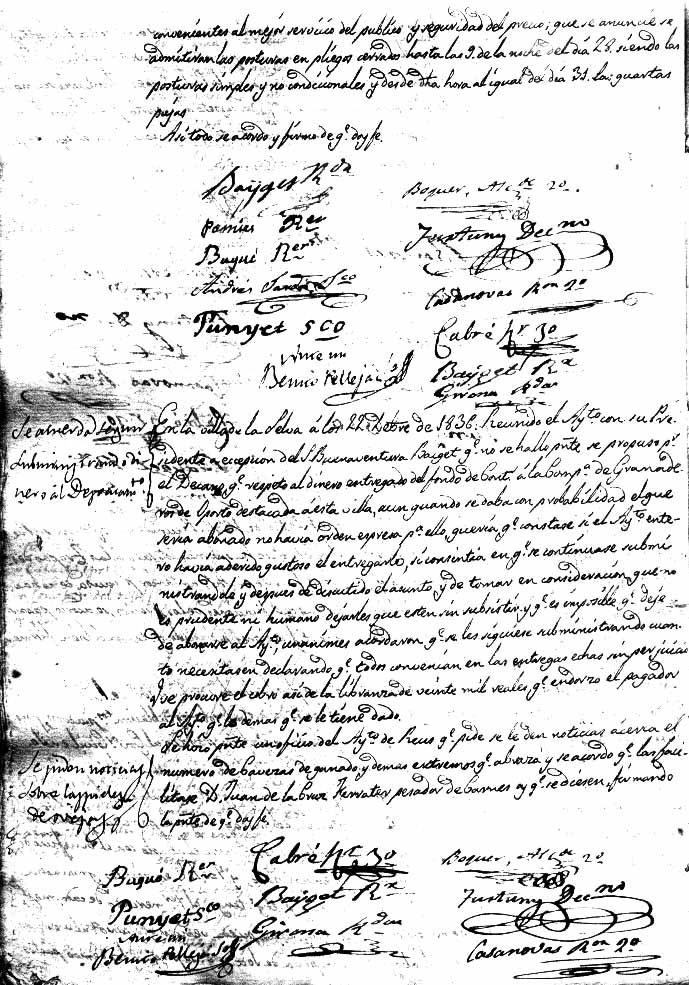 convenientes al mejor servicio del publico y seguridad del precio; que se anuncie se
admitiran las posturas en pliegos cerrados hasta las 9. de la noche del dia 28. siendo las
posturas simples y no condicionales y desde dha hora al igual del dia 31. las quartas
pujas
Asi todo se acordo y firmo de q.e doy fe.
Bayget R.dor
Boquer, Alc.de 2o.
Pamies Ror
Fustuny Decno
Bagué R.or
Andres Sco
Casanovas R.on 2o
Punyet Sco
Cabré 3o
Benito Pellejá
Bayget Ra
Girona R.dor
Se acuerda seguir
subministrando di-
nero al Depositario
En la villa de la Selva á los 22 de 1836. Reunido el Ay.to con su Pre-
sidente a excepcion del S. Buenaventura Baiget q.e no se halló pnte se propuso p.r
el Decano q.e respeto al dinero entregado del fondo de Cont. á la Comp.a de Granade-
ros de Oporto destacada á esta villa, aun quando se daba con probabilidad el que
seria abonado no havia orden espresa p.a ello, queria q.e constase si el Ay.to ente-
ro havia aderido gustoso el entregarlo, si consintia en q.e se continuase submi
nistrandole y despues de discutido el asunto, y de tomar en consideracion que no
es prudente ni humano dejarles que esten sin subsistir y q.e es imposible q.e deje-
de abonarse al Ay.to, unanimes acordaron q.e se les siguiese subministrando cuan-
to necesitasen declarando q.e todos convenian en las entregas echas sin perjuicio
que procure el cobro asi de la libranza de veinte mil reales q.e endorzo el pagador
al Ay.to q.e lo demas q.e se le tiene dado.
Se piden noticias
sobre
de ovejas
pnte un oficio del Ay.to de Reus q.e pide se le den noticias acerca el
numero de cavezas de ganado y demas estremos q.e abraza y se acordo q.e las faci-
litase D. Juan de la Cruz Ferrater pesador de carnes y q.e se diesen, firmando
la pnte de q.e doy fe
Bagué R.or
Cabré 3o
Boquer, Alc.de 2o
Punyet Sco
Bayget Ra
Fustuny Decno
Benito Pellejá
Girona R.dor
Casanovas R.on 2o